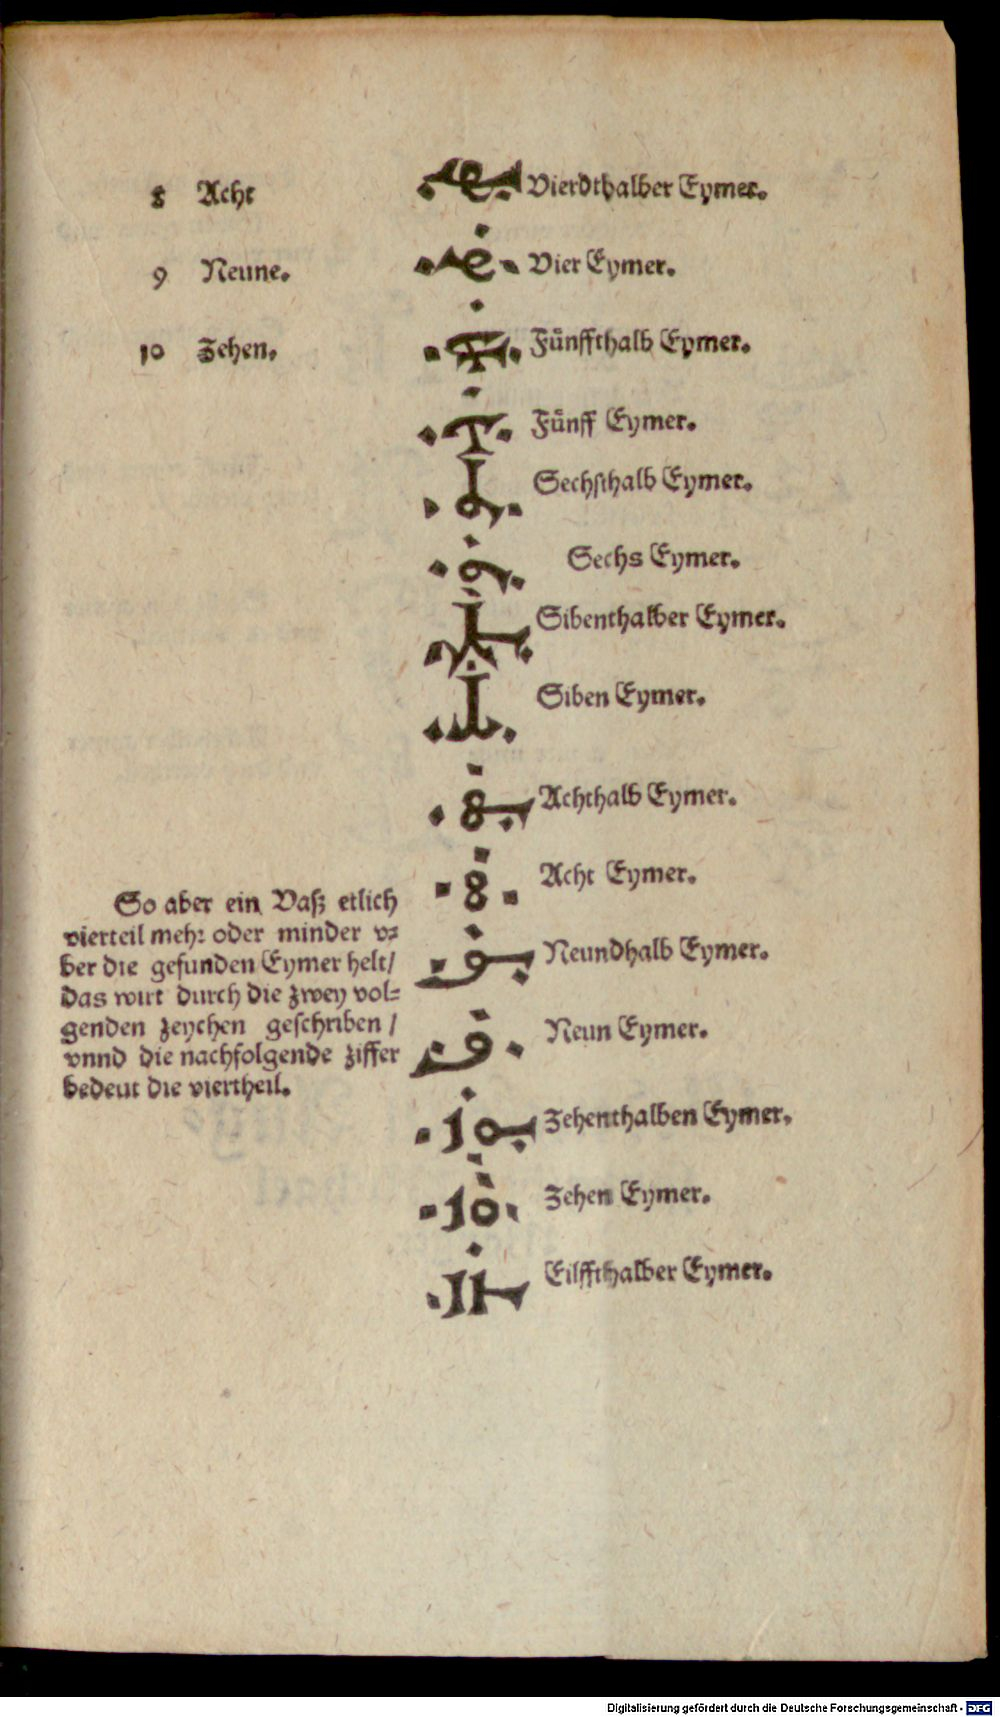 8 Acht
9 Neune.
10 Zehen.
So aber ein Vaß etlich
vierteil mehr oder minder v⸗
ber die gefunden Eymer helt/
das wirt durch die zwey vol⸗
genden zeychen geschriben /
vnnd die nachfolgende ziffer
bedeut die viertheil.
Vierdthalber Eymer.
Vier Eymer.
Fünffthalb Eymer.
Fünff Eymer.
Sechsthalb Eymer.
Sechs Eymer.
Sibenthalber Eymer.
Siben Eymer.
8 Achthalb Eymer.
8 Acht Eymer.
9 Neundhalb Eymer.
9 Neun Eymer.
10 Zehenthalben Eymer.
10 Zehen Eymer.
11 Eilffthalber Eymer.
Digitalisierung gefördert durch die Deutsche Forschungsgemeinschaft - DFG